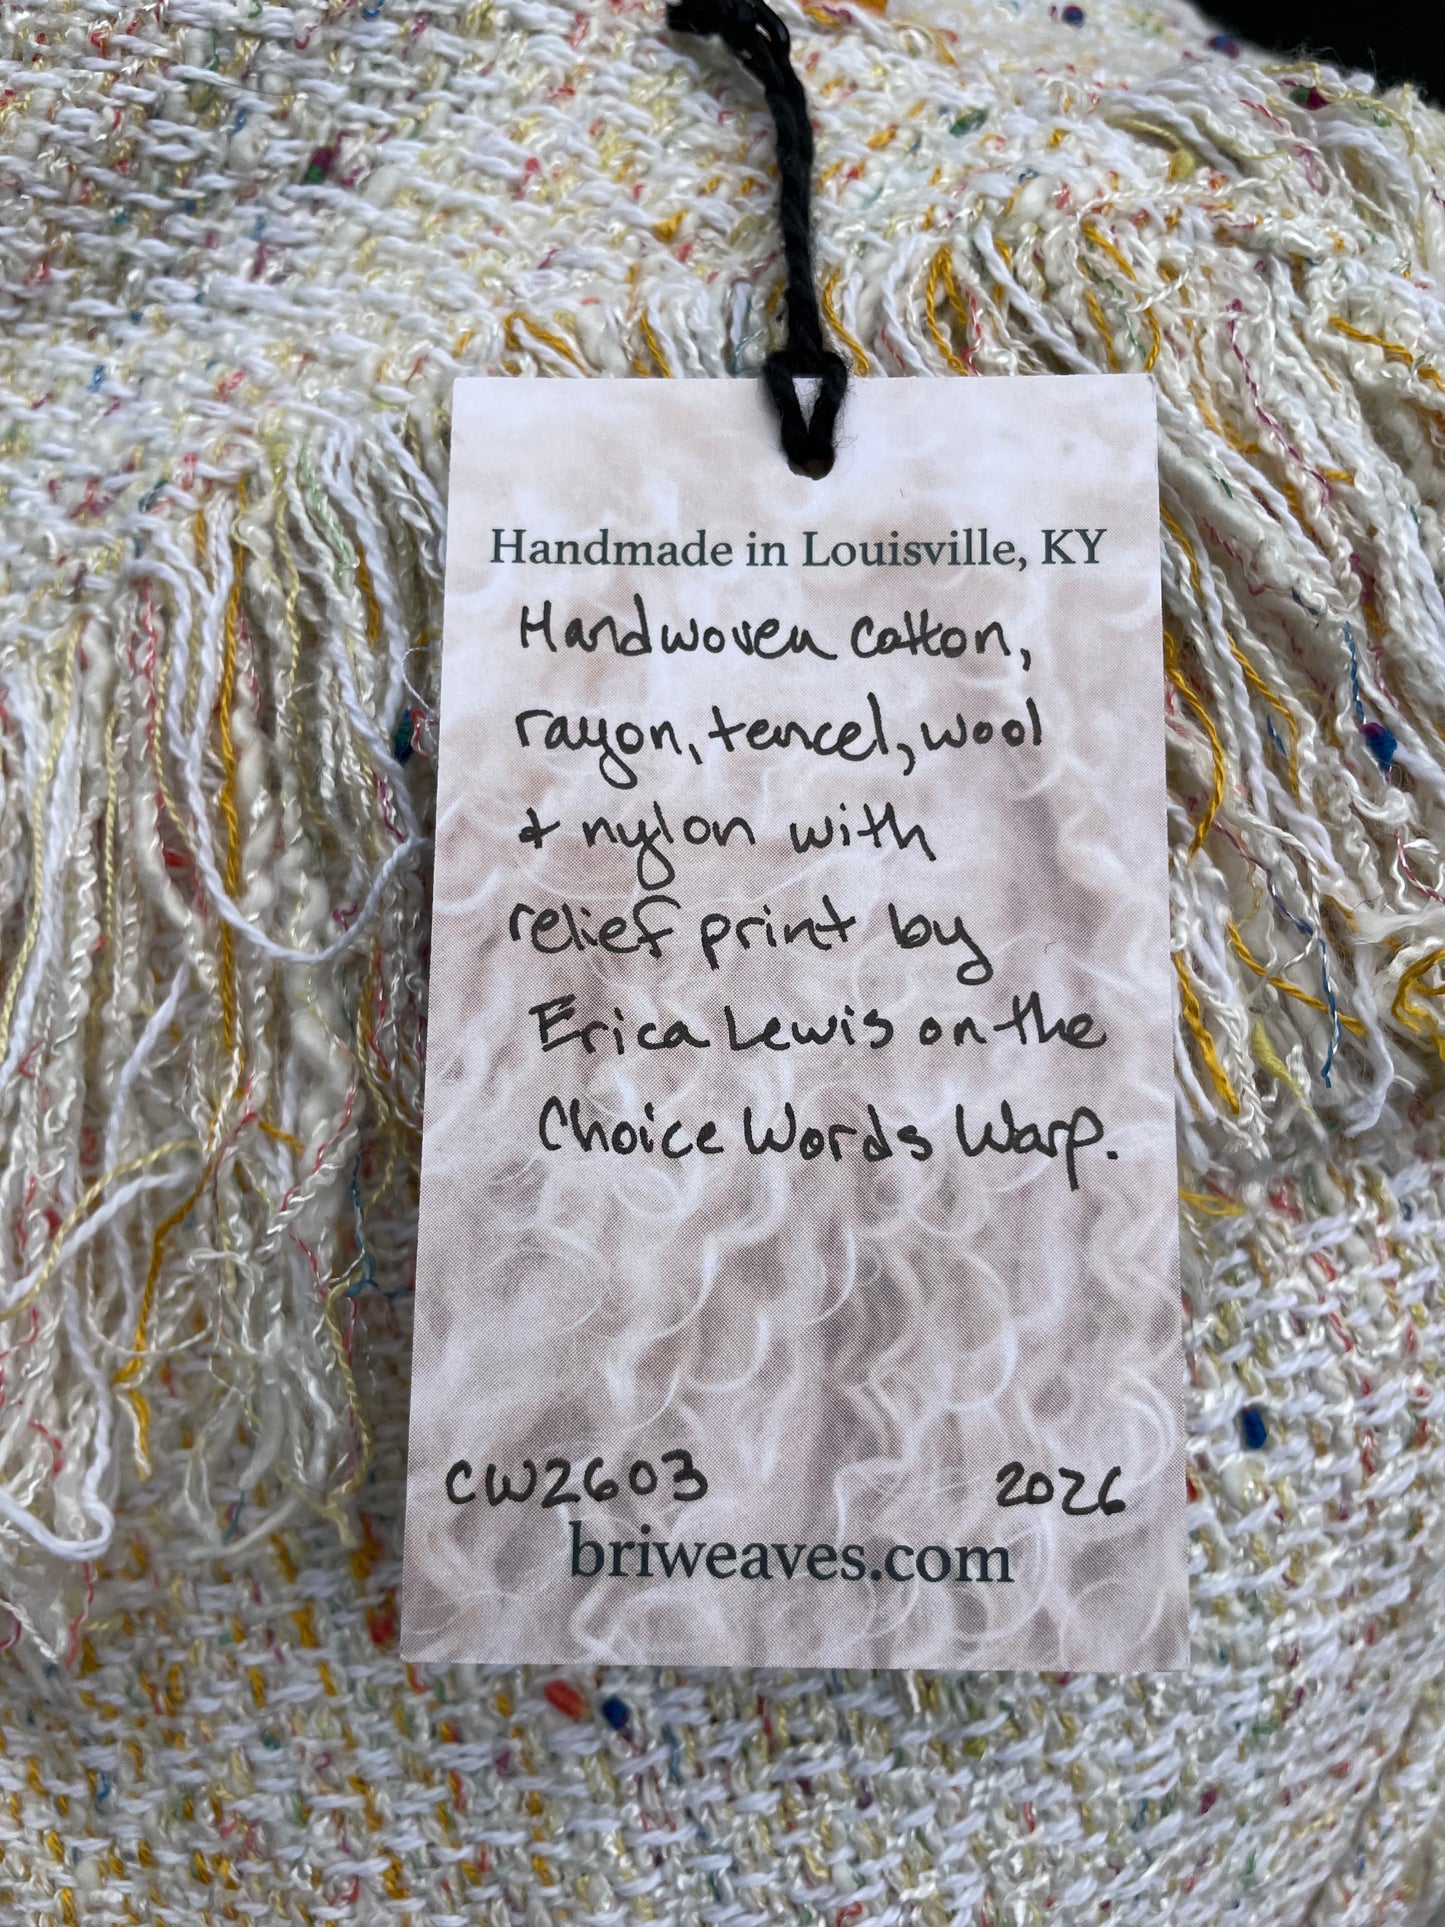 Handmade in Louisville, KY
Handwoven cotton,
rayon, tencel, wool
& nylon with
relief print by
Erica Lewis on the
Choice Words Warp.
CW2603 2026
briweaves.com